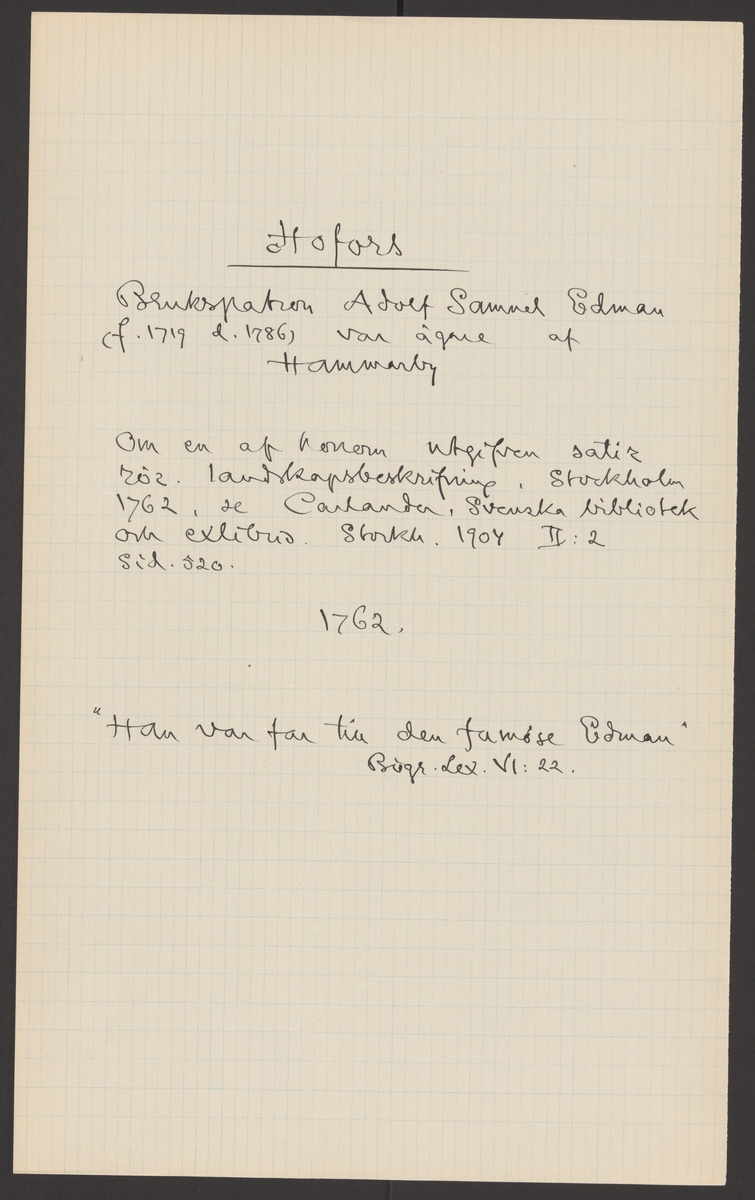 Hofors
Brukspatron Adolf Samuel Edman
(f. 1719 d. 1786) var ägare af
Hammarby
Om en af honom utgifven satir
rör. landskapsbeskrifning, Stockholm
1762, se Carlander, Svenska bibliotek
och exlibris. Stockh. 1904 II:2
Sid. 520.
1762.
"Han var far till den famöse Edman"
Biogr. Lex. VI: 22.